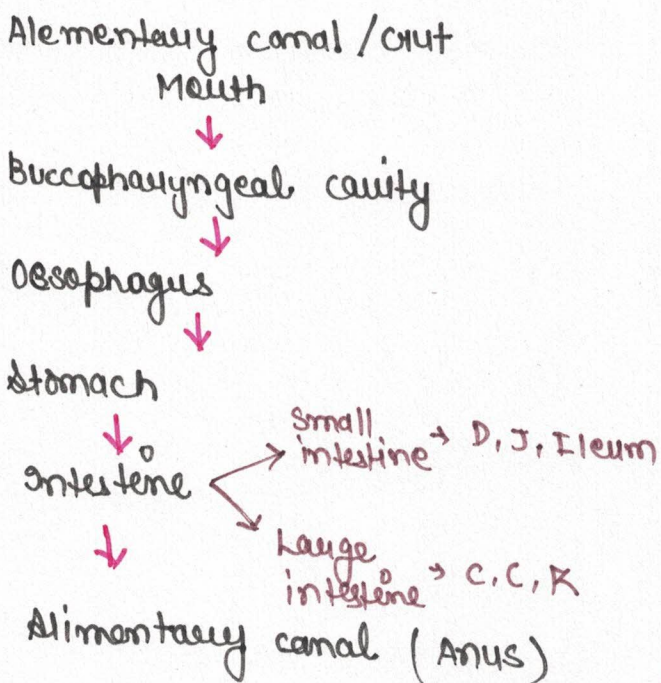 Alementary canal / Gut
Mouth
↓
Buccopharyngeal cavity
↓
Oesophagus
↓
Stomach
↓
Intestine
Small
intestine → D, J, Ileum
Large
intestine → C, C, R
↓
Alimentary canal (Anus)